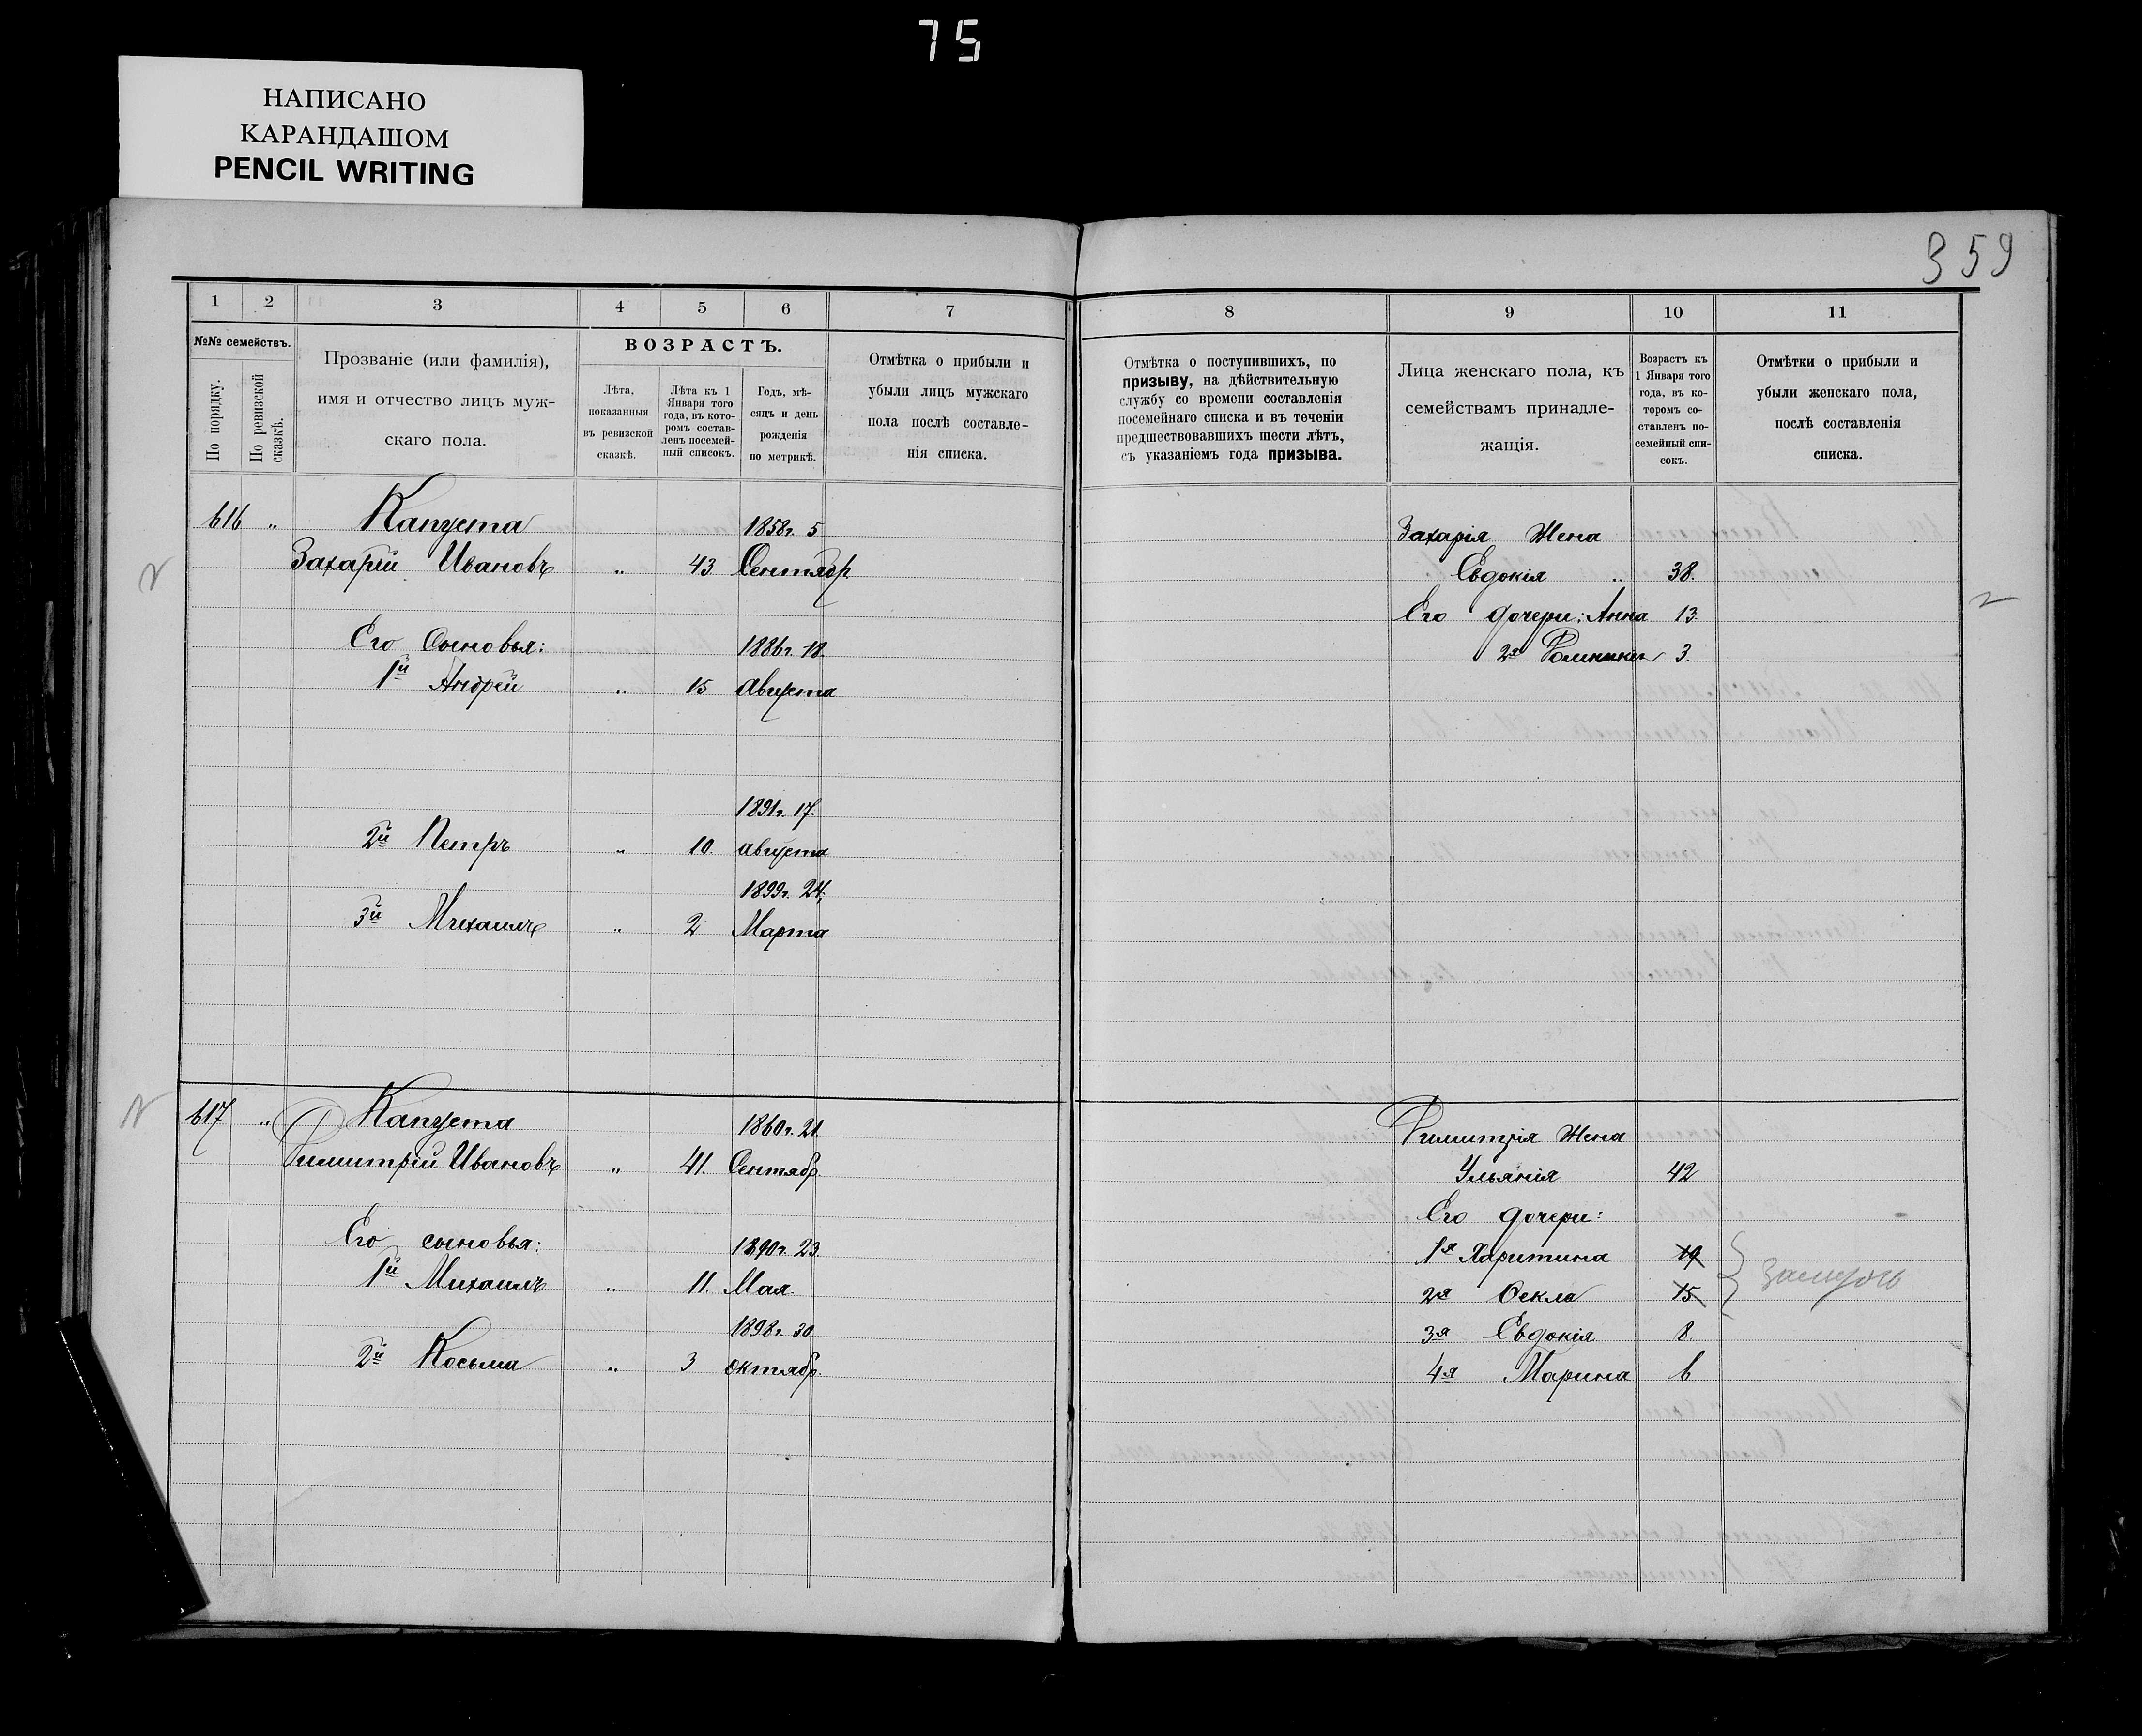 75
НАПИСАНО
КАРАНДАШОМ
PENCIL WRITING
359
1 2 3 4 5 6 7
№№ семействъ.
По порядку.
По ревизской сказкѣ.
Прозваніе (или фамилія),
имя и отчество лицъ муж-
скаго пола.
ВОЗРАСТЪ.
Лѣта,
показанныя
въ ревизской
сказкѣ.
Лѣта къ 1
Января того
года, въ кото-
ромъ состав-
ленъ посемей-
ный списокъ.
Годъ, мѣ-
сяцъ и день
рожденія
по метрикѣ.
Отмѣтка о прибыли и
убыли лицъ мужскаго
пола послѣ составле-
нія списка.
616 „ Капуста 1858г. 5
Захарій Ивановъ „ 43 Сентябр.
Его Сыновья: 1886г. 18.
1й Андрей „ 15 Августа
1891г. 17.
2й Петръ „ 10. августа
1899г. 24.
3й Михаилъ „ 2 Марта
617 „ Капуста 1860г. 21
Димитрій Ивановъ „ 41. Сентябр.
Его сыновья: 1890г. 23
1й Михаилъ „ 11. Мая.
1898г. 30
2й Косьма „ 3 октябр.
8 9 10 11
Отмѣтка о поступившихъ, по
призыву, на дѣйствительную
службу со времени составленія
посемейнаго списка и въ теченіи
предшествовавшихъ шести лѣтъ,
съ указаніемъ года призыва.
Лица женскаго пола, къ
семействамъ принадле-
жащія.
Возрастъ къ
1 Января того
года, въ ко-
торомъ со-
ставленъ по-
семейный спи-
сокъ.
Отмѣтки о прибыли и
убыли женскаго пола,
послѣ составленія
списка.
Захарія Жена
Евдокія „ 38.
Его дочери: Анна 13.
2я 3.
Димитрія Жена
Ульянія 42
Его дочери:
1я Харитина 19
2я Ѳекла 15
замужъ
3я Евдокія 8
4я Марина 6